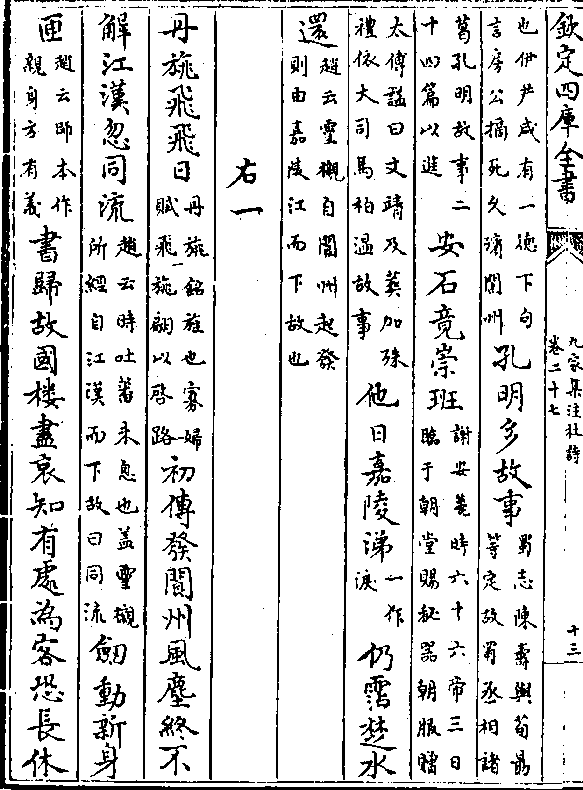 欽定四庫全書
九家集注杜詩
卷二十七
十三
也伊尹咸有一德下句
言房公摘死久殯閬州
孔明多故事
蜀志陳壽與荀勗
等定故蜀丞相諸
葛孔明故事二
十四篇以進
安石竟崇班
謝安薨時六十六帝三日
臨于朝堂賜秘器朝服贈
太傅諡曰文靖及葬加殊
禮依大司馬桓溫故事
他日嘉陵涕
一作
淚
仍霑楚水
還
趙云靈櫬自閬州起發
則由嘉陵江而下故也
右一
丹旐飛飛日
丹旐銘旌也寡婦
賦飛旐翩以啓路
初傳發閬州風塵終不
解江漢忽同流
趙云時吐蕃未息也盖靈櫬
所經自江漢而下故曰同流
劒動新身
匣
趙云師本作
親身方有義
書歸故國樓盡哀知有處為客恐長休